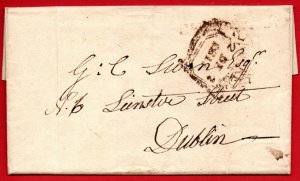 G: C Swan Esqr.
No. 6 Leinster Street
Dublin